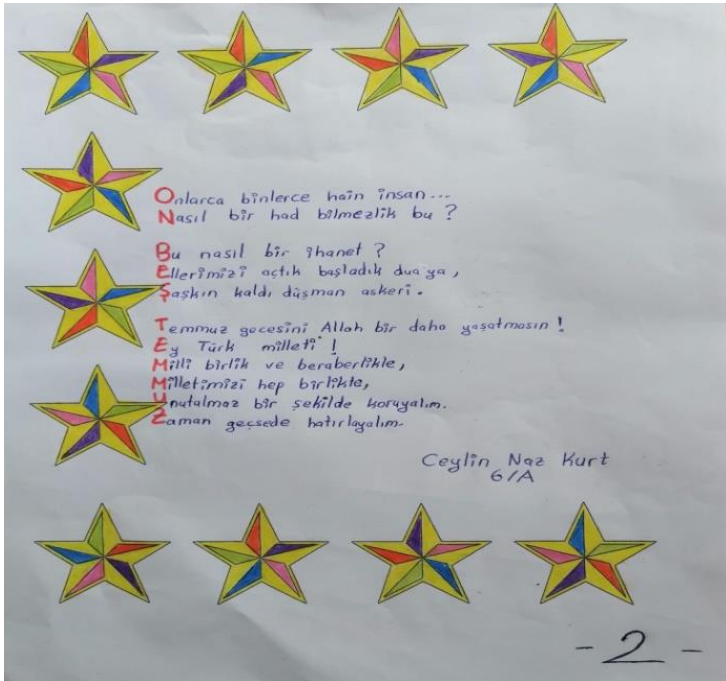 Onlarca binlerce hain insan...
Nasıl bir had bilmezlik bu ?
Bu nasıl bir ihanet ?
Ellerimizi açtık başladık dua'ya,
Şaşkın kaldı düşman askeri.
Temmuz gecesini Allah bir daha yaşatmasın !
Ey Türk milleti !
Milli birlik ve beraberlikle,
Milletimizi hep birlikte,
Unutulmaz bir şekilde koruyalım.
Zaman geçsede hatırlayalım.
Ceylin Naz Kurt
6/A
-2-